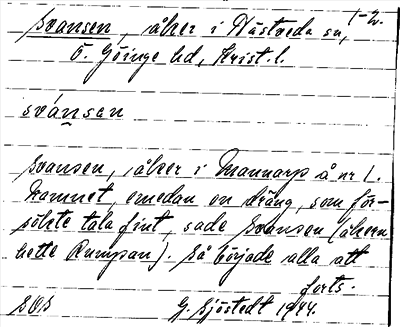 1-2.
Svansen, åker i Hästveda sn,
Ö. Göinge hd, Krist. l.
svánsan
Svansen, åker i Mannarp å nr 1.
Namnet, emedan en dräng, som för-
sökte tala fint, sade Svansen (åkern
hette Rumpan). Så började alla att
forts.
G. Sjöstedt 1944.